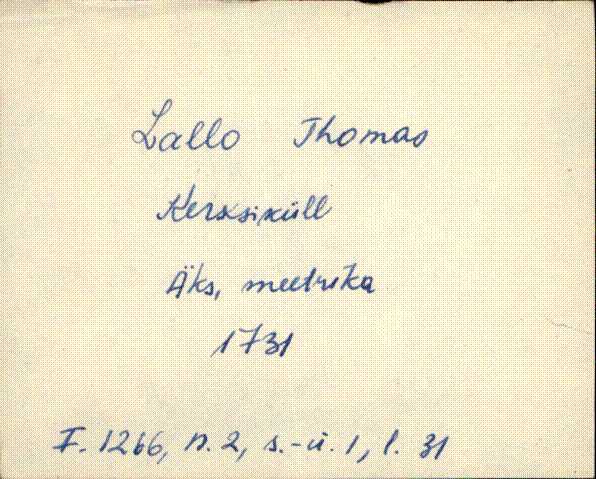 Lallo Thomas
Kerssiküll
Äks, meetrika
1731
F. 1266, n. 2, s.-ü. 1, l. 31